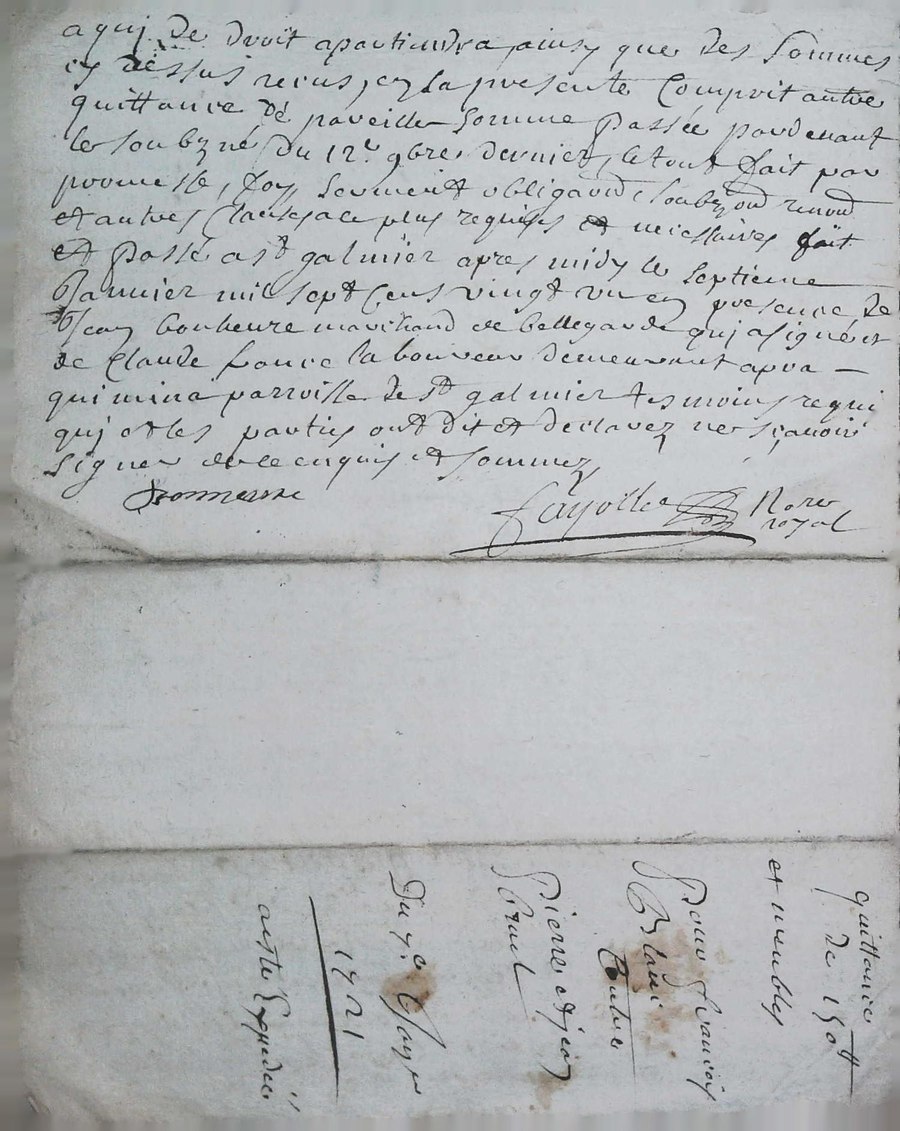 a quj de droit apartiendra, ainsy que des sommes
cy dessus recus, en la presente comprit autre
quittance de pareille somme passée pardevant
le soubzné du 12e 9bre dernier, le tout fait par
promesse, foy, serment obligaõns soub
et autres clauses a ce plus requises et necessaires fait
et passé a st galmier apres midy le septieme
Janvier mil sept cens vingt un en presence de
Jean bonheure marchand de bellegarde quj a signé et
de Claude france laboureur demeurant a pra –
quimina parroisse de st galmier tesmoins requi
quj et les parties ont dit et declarez ne sçavoir
signer de ce enquis et sommez
Bonneure
fayolle Nore
royal
quittance
de 150 ll
et meubles
Pour francois
Blain
Contre
Pierre et jean
Brul
Du 7e Janver
1721
acte Expediée